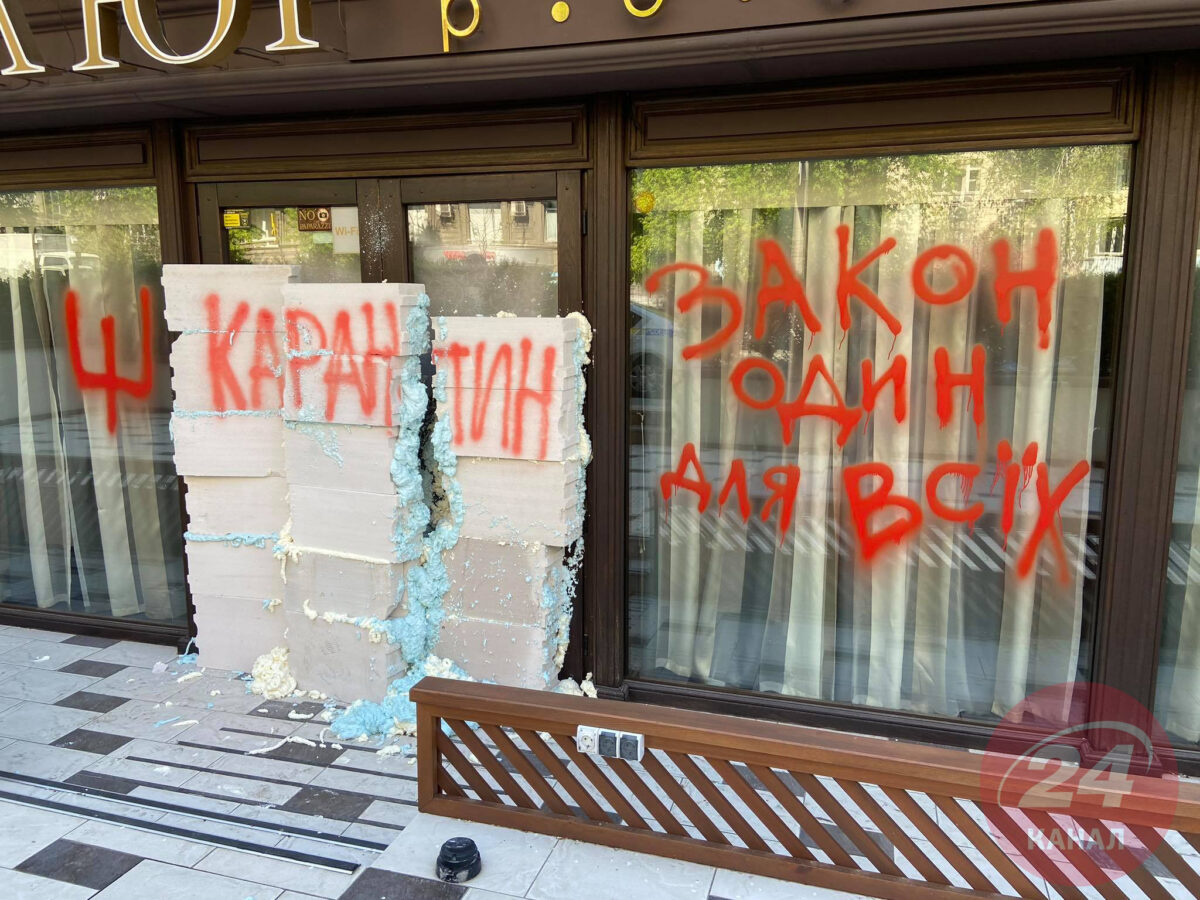 NO PAPARAZZI
Wi-Fi
КАРАНТИН
ЗАКОН
ОДИН
ДЛЯ ВСІХ
24
КАНАЛ